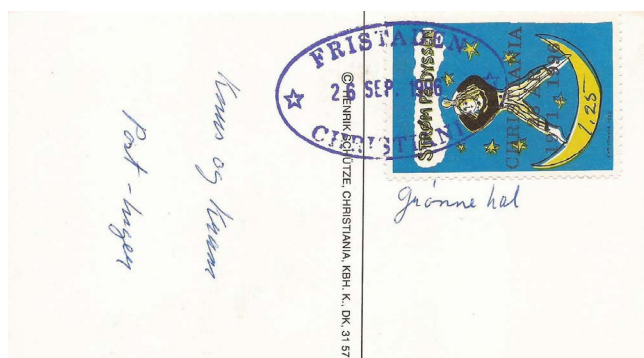 Knus og Kram
Post-Inger
FRISTADEN
26 SEP. 1996
CHRISTIANIA
© HENRIK SCHÜTZE, CHRISTIANIA, KBH. K., DK, 31 57
CHRISTIANIA
1971 1996
1.25
Grønne hal